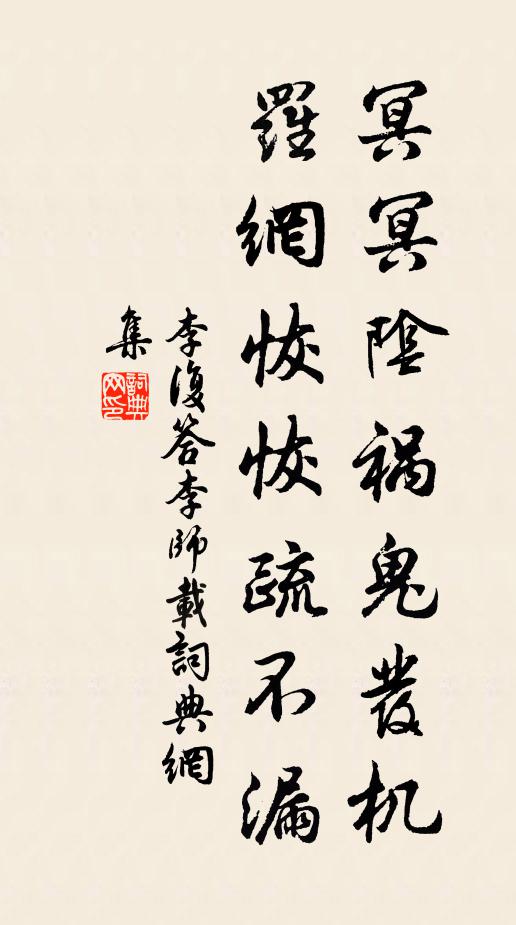 冥冥陰禍鬼發机
羅網恢恢疏不漏
李復答李師載詞典網
集
詞典
网印